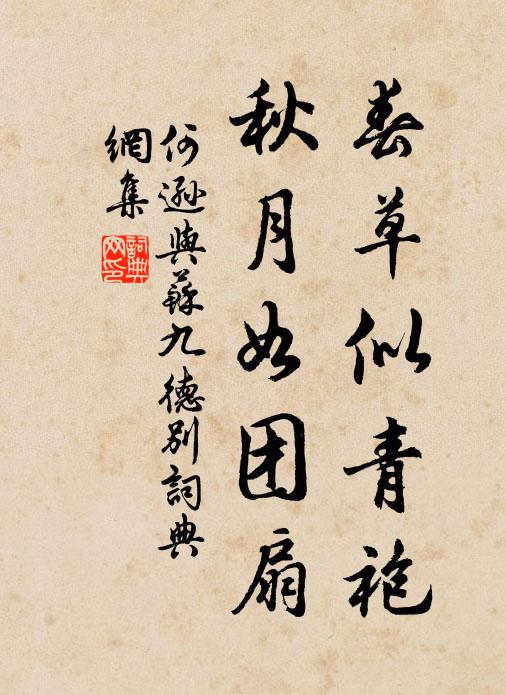 春草似青袍
秋月如团扇
何遜與蘇九德别詞典
網集
詞典网印